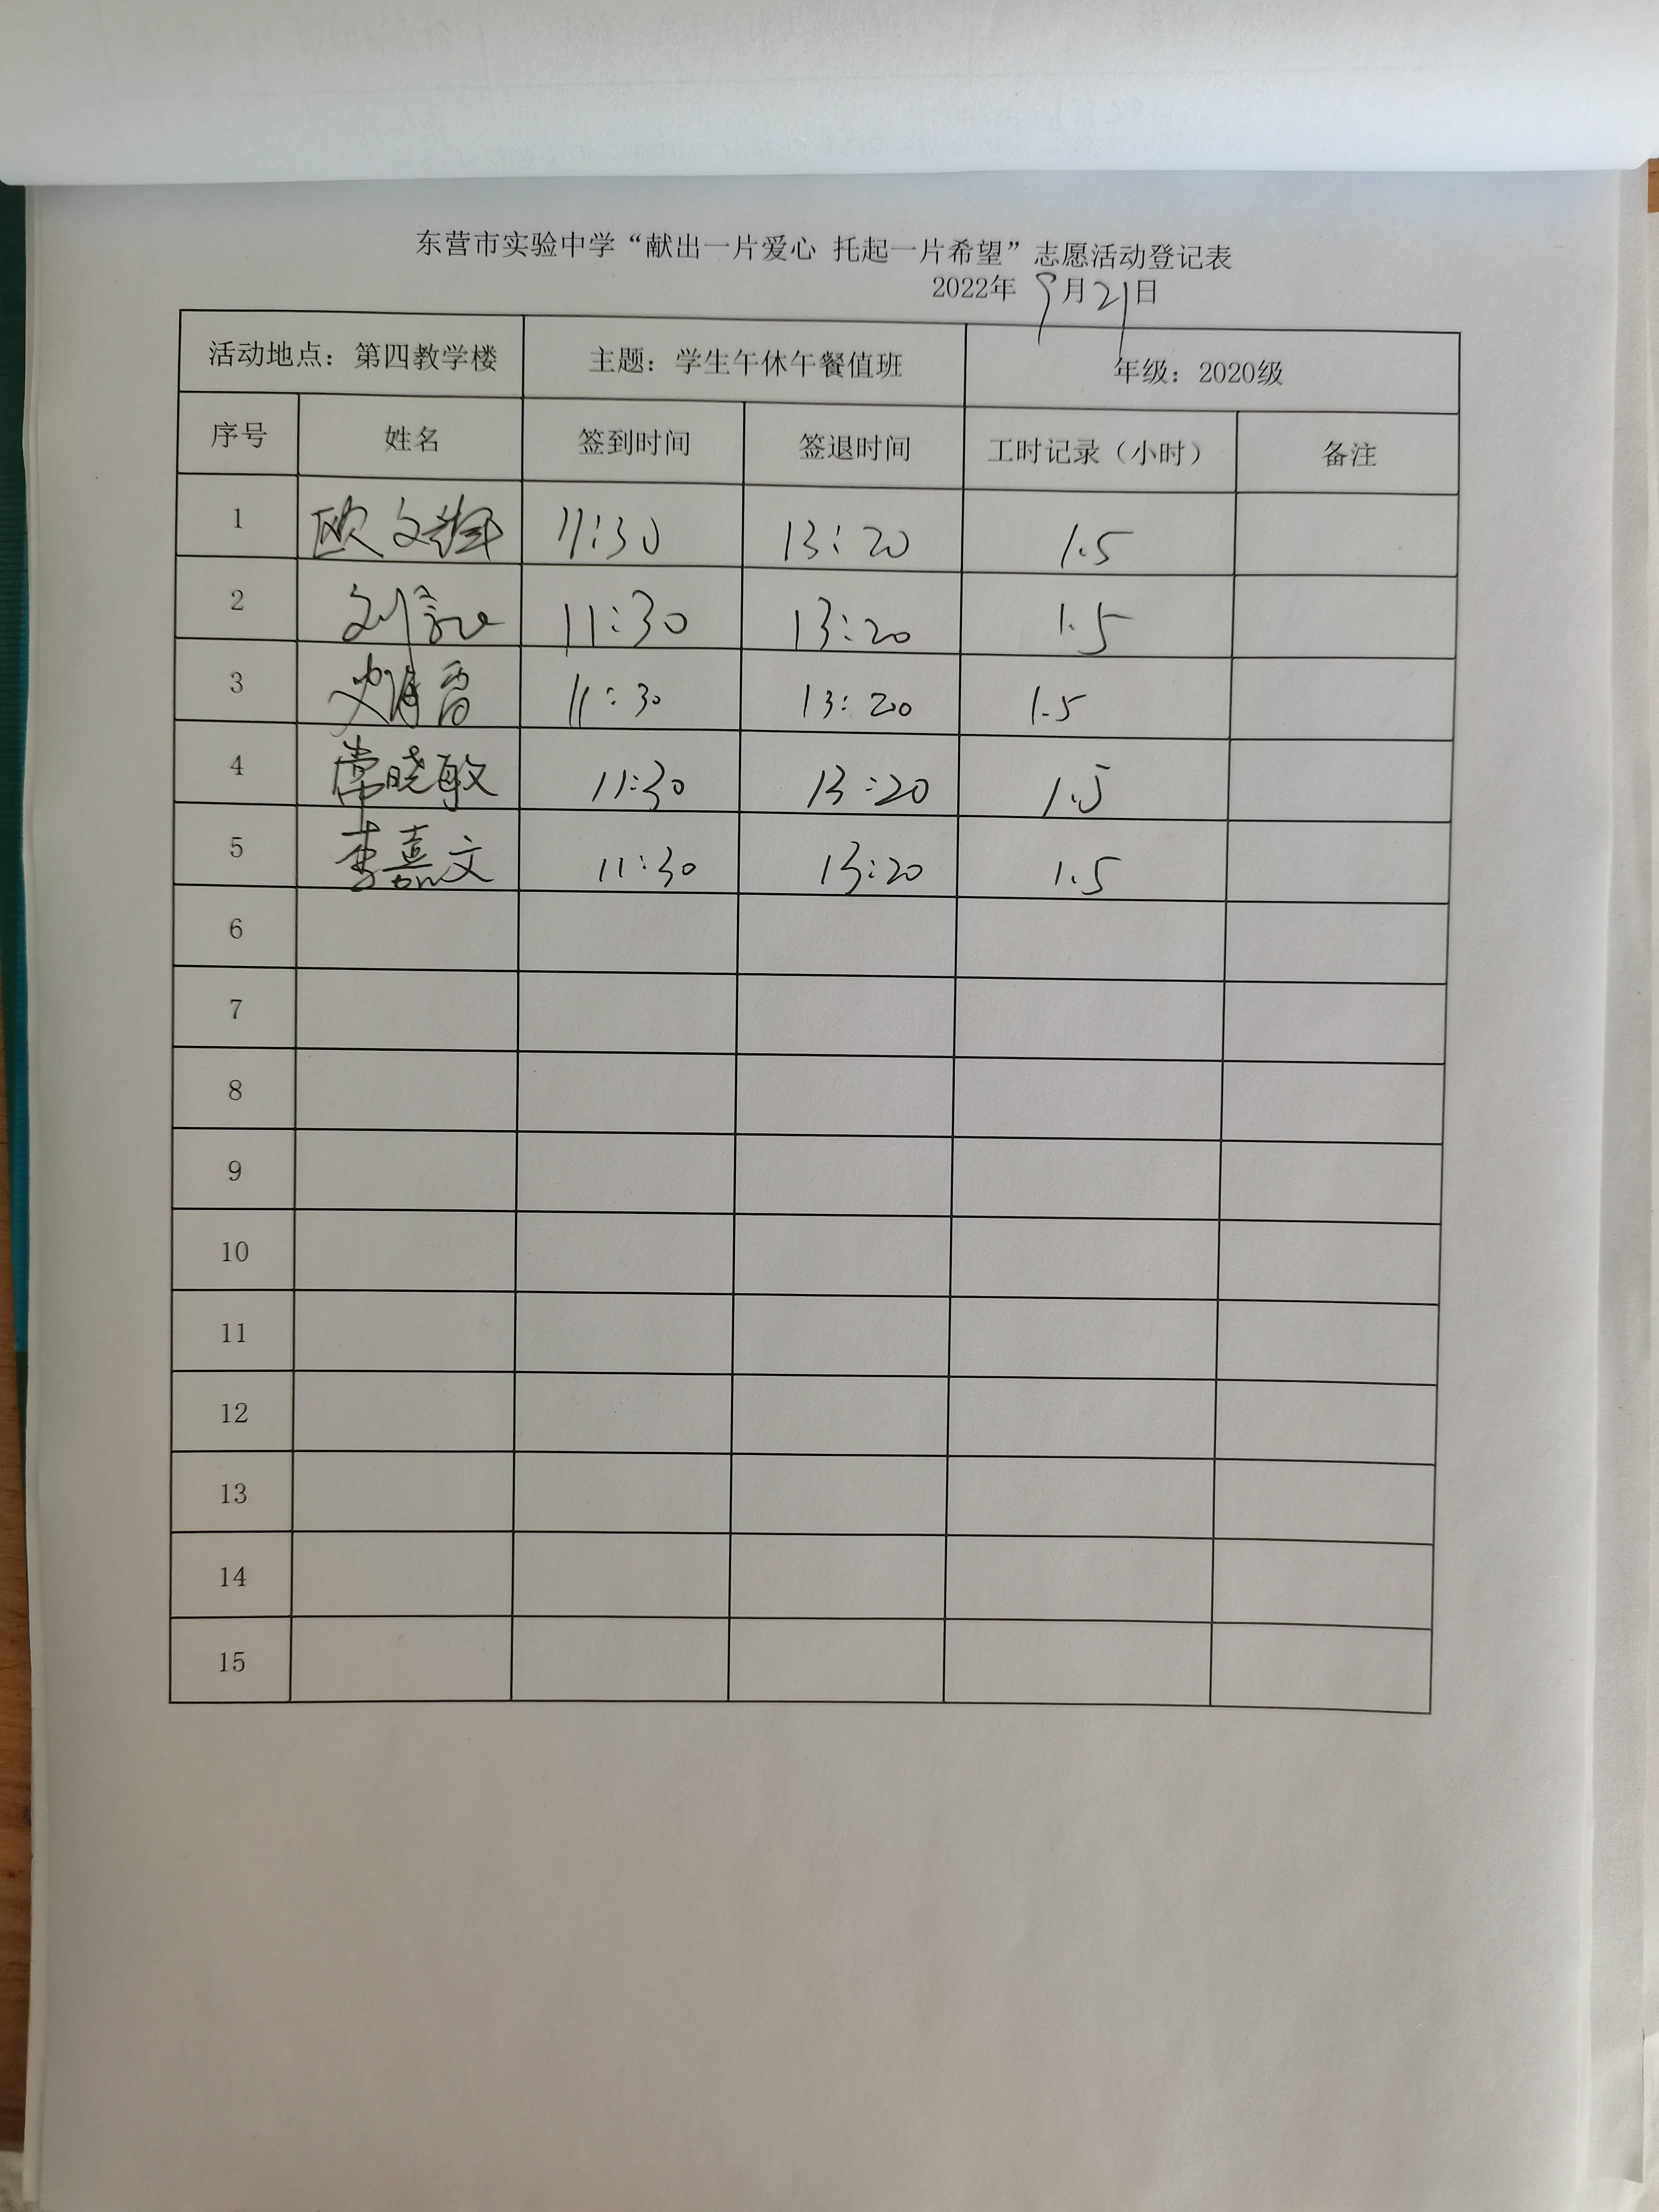 东营市实验中学“献出一片爱心 托起一片希望”志愿活动登记表
2022年 9月21日
活动地点：第四教学楼 主题：学生午休午餐值班 年级：2020级
序号 姓名 签到时间 签退时间 工时记录（小时） 备注
1 欧文 11:30 13:20 1.5
2 刘 11:30 13:20 1.5
3 11:30 13:20 1.5
4 常晓敏 11:30 13:20 1.5
5 李嘉文 11:30 13:20 1.5
6
7
8
9
10
11
12
13
14
15